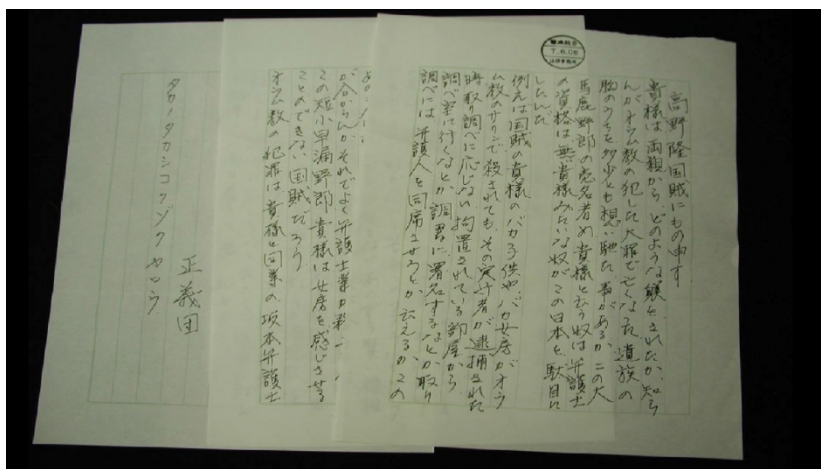 7.6.06
高野隆国賊にもの申す
貴様は両親から、どのような躾をされたか、知ら
んがオウム教の犯した大罪で亡くなった遺族の
胸のうちを多少とも想い馳た事があるか、この大
馬鹿野郎の悪名者め貴様と云う奴は弁護士
の資格は無、貴様みたいな奴がこの日本を駄目に
したんだ
例えば国賊の貴様のバカ子供や、バカ女房がオウ
ム教のサリンで殺されても、その実行者が逮捕された
時取り調べに応じない拘置されている部屋から
調べ室に行くなとか調書に署名するなとか取り
調べには弁護人を同席させろとか云えるか、この
が分からんがそれでよく弁護士業が
この短小早漏野郎貴様は女房を感じさせる
ことのできない国賊だろう
オウム教の犯罪は貴様と同業の坂本弁護士
正義団
タカノタカシコクゾクヤロウ